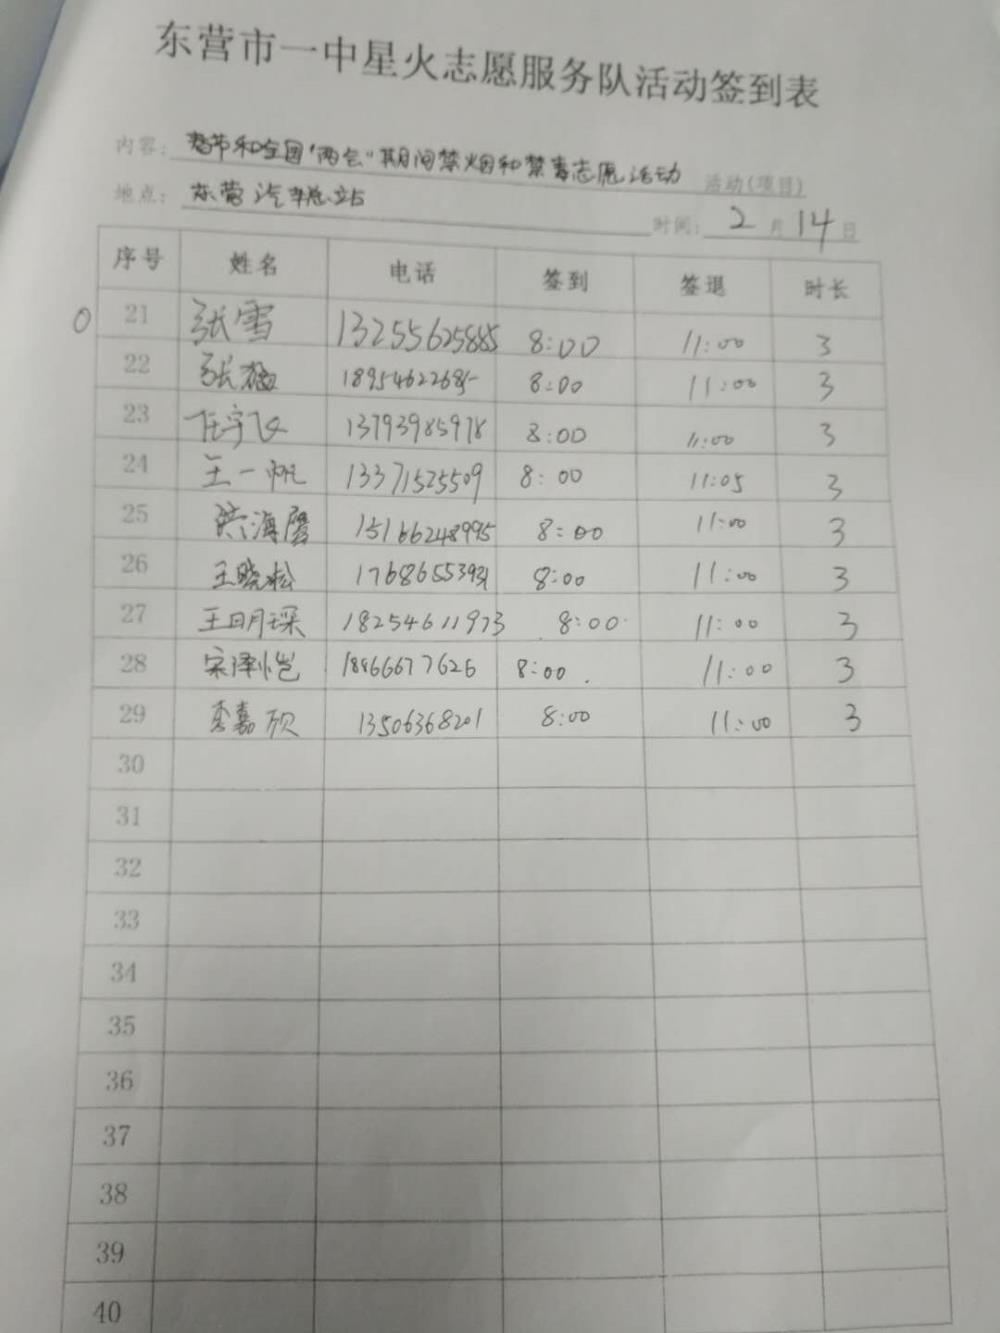 东营市一中星火志愿服务队活动签到表
内容: 春节和全国"两会"期间禁烟和禁毒志愿活动 活动(项目)
地点: 东营汽车总站 时间: 2月14日
序号 姓名 电话 签到 签退 时长
21 张雪 13255625885 8:00 11:00 3
22 张 8:00 11:00 3
23 任宇飞 13793985978 8:00 11:00 3
24 王一帆 13371525509 8:00 11:05 3
25 洪海 15166248995 8:00 11:00 3
26 王晓松 8:00 11:00 3
27 王明琛 18254611973 8:00 11:00 3
28 宋泽恺 18966677626 8:00 11:00 3
29 李嘉硕 13506368201 8:00 11:00 3
30
31
32
33
34
35
36
37
38
39
40